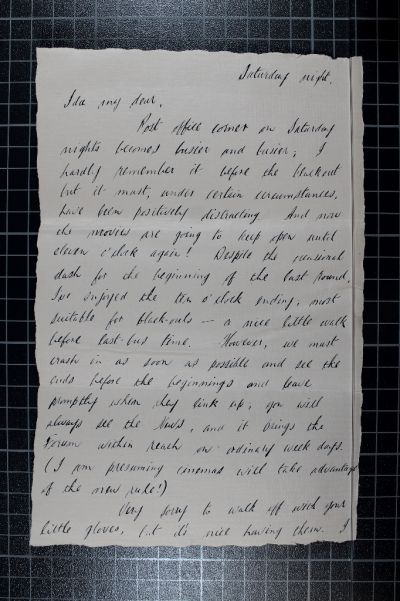 Saturday night.
Ida my dear,
Post office corner on Saturday
nights becomes busier and busier; I
hardly remember it before the blackout
but it must, under certain circumstances,
have been positively distracting. And now
the movies are going to keep open until
eleven o'clock again! Despite the occasional
dash for the beginning of the last round,
I've enjoyed the ten o'clock ending, most
suitable for black-outs — a nice little walk
before last-bus time. However, we must
crash in as soon as possible and see the
ends before the beginnings and leave
promptly when they link up; you will
always see the News, and it brings the
Forum within reach on ordinary week days.
(I am presuming cinemas will take advantage
of the new rule!)
Very sorry to walk off with your
little gloves, but it's nice having them. I